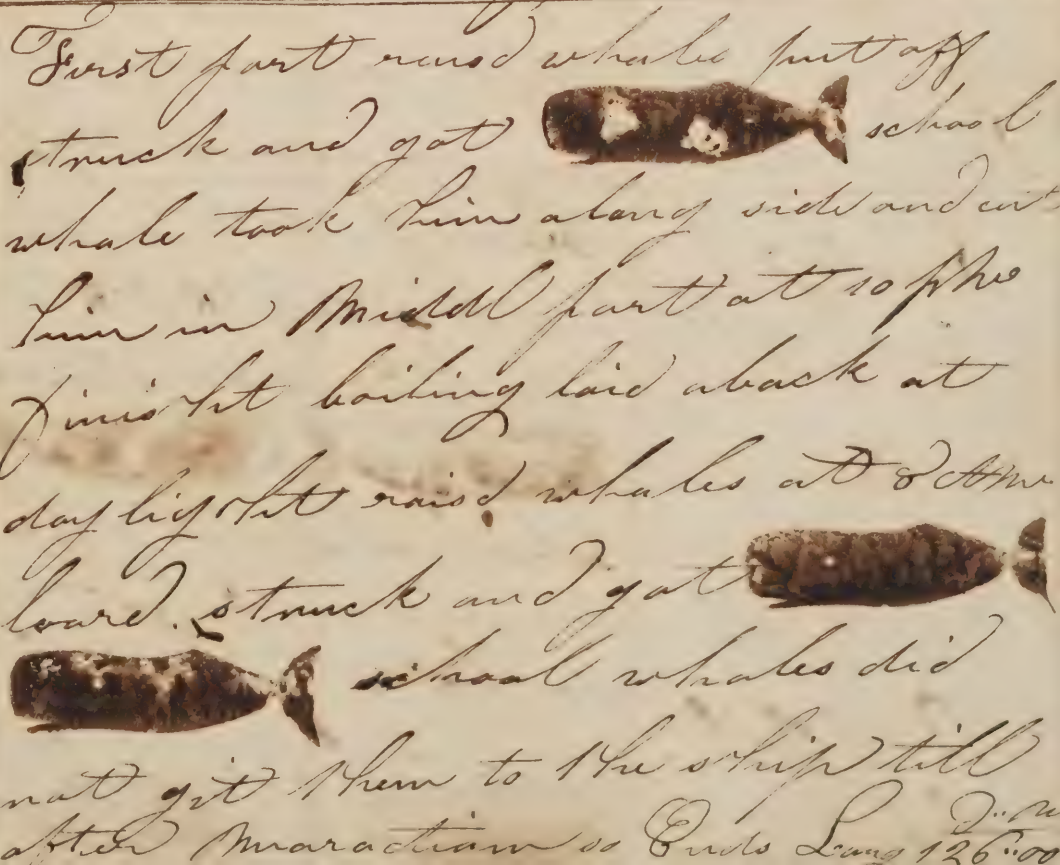 First part raisd whales put off
struck and got school
whale took him along side and cut
him in Middl part at 10 PM
finisht boiling laid aback at
day light raisd whales at 8 AM
loard. struck and got
school whales did
not git them to the ship till
after Meradiam so Ends Long 126"00